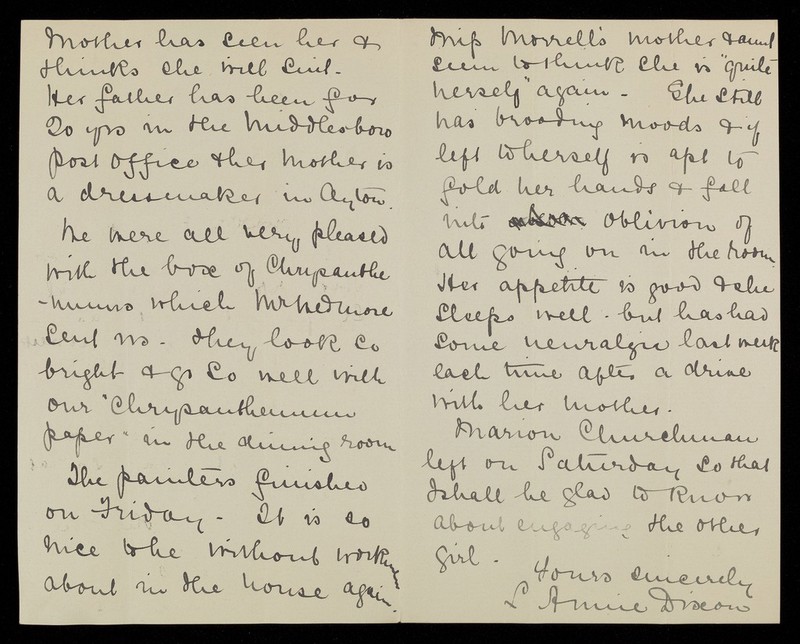 Mother has seen her &
thinks she will suit.
Her father has been for
20 yrs in the Middlesboro
post office & her Mother is
a dressmaker in Ayton.
We were all very pleased
with the box of Chrysanthe
-mums which Mr Wedmore
sent us. They look so
bright & go so well with
our "Chrysanthemum
paper" in the dining room
The painters finished
on Friday - It is so
nice to be without workmen
about in the house again.
Miss Morrell's mother & aunt
seem to think she is "quite
herself" again - She still
has brooding moods & if
left to herself is apt to
fold her hands & fall
into oblivion of
all going on in the room
Her appetite is good & she
sleeps well - but has had
some neuralgia last week
each time after a drive
with her mother.
Marion Churchman
left on Saturday so that
I shall be glad to know
about engaging the other
girl -
Yours sincerely
L Annie Dixon